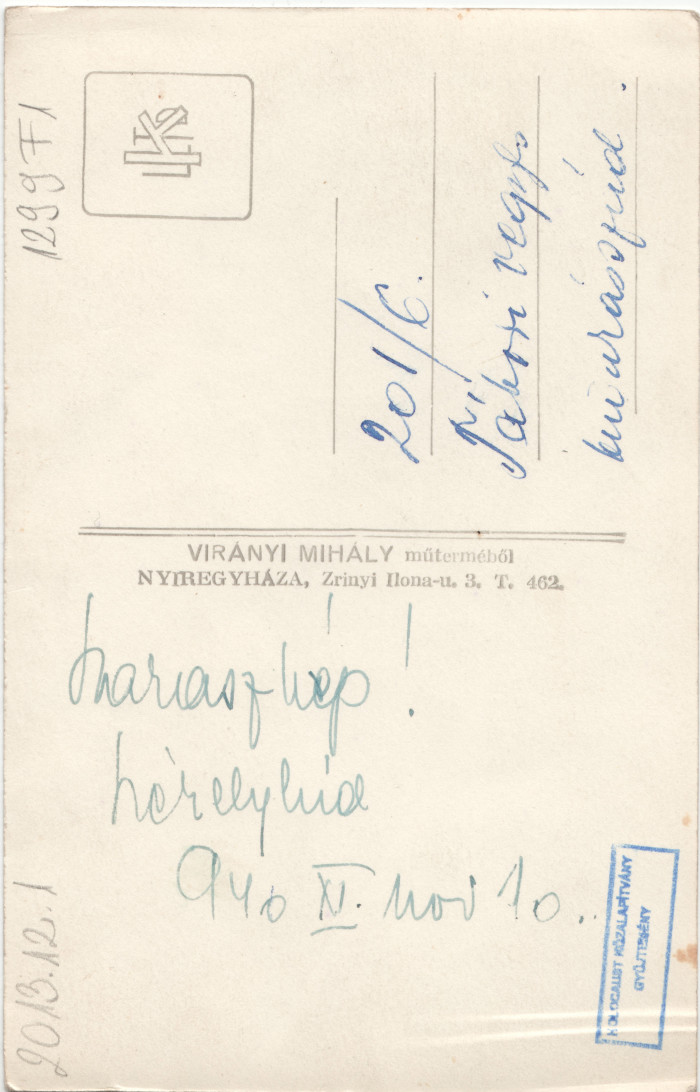 1299 F1
201/6.
Tábori
VIRÁNYI MIHÁLY műterméből
NYIREGYHÁZA, Zrinyi Ilona-u. 3. T. 462.
Székelyhíd
940 XI. nov 10.
2013.12.1
HOLOCAUST KÖZALAPÍTVÁNY
GYŰJTEMÉNY